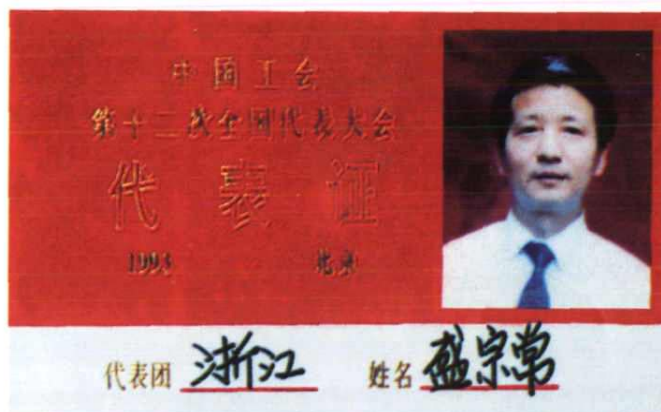 中国工会
第十二次全国代表大会
代表证
1993 北京
代表团 浙江 姓名 盛宗常